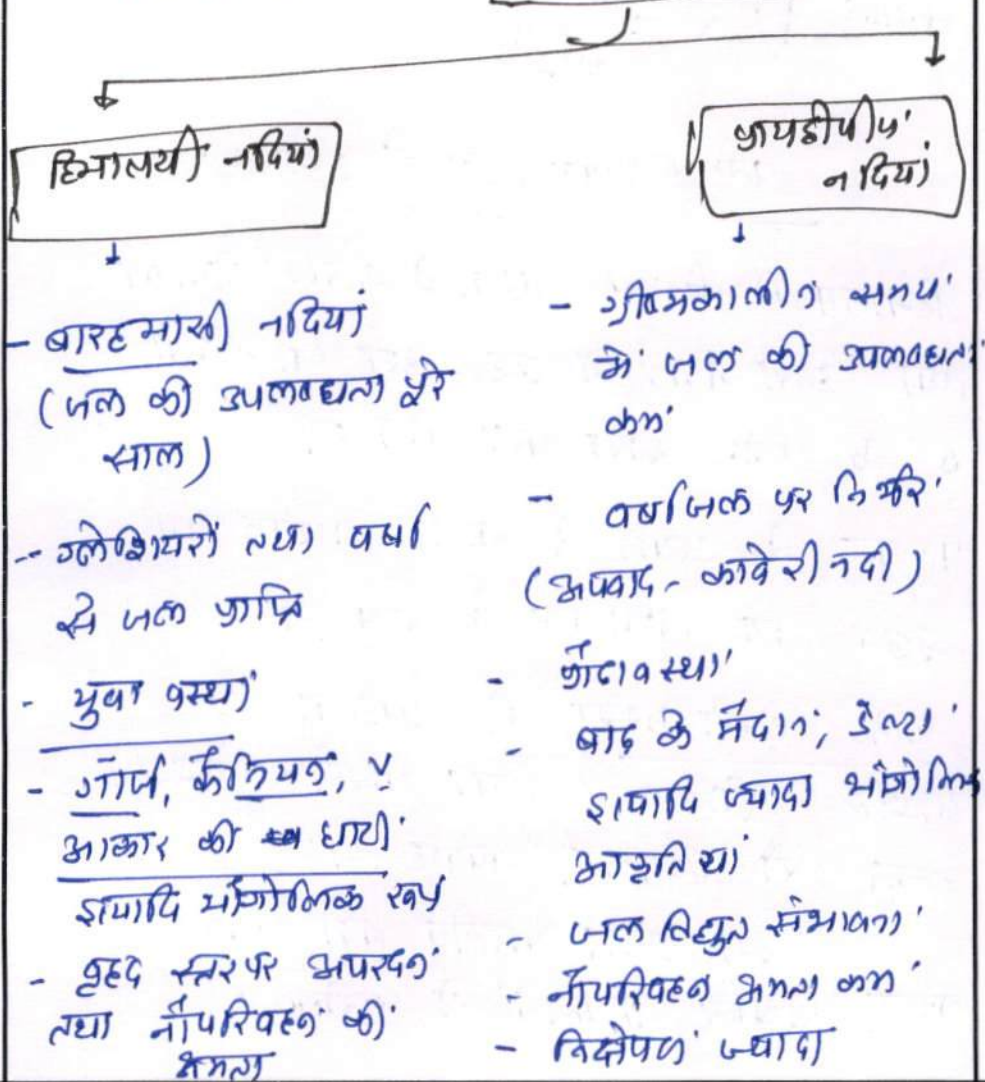 हिमालयी नदियां
- बारहमासी नदियां
(जल की उपलब्धता पूरे
साल)
- ग्लेशियरों तथा वर्षा
से जल प्राप्ति
- युवावस्था
- गॉर्ज, कैनियन, V
आकार की घाटी
इत्यादि भौगोलिक रूप
- वृहद स्तर पर अपरदन
तथा नौपरिवहन की
क्षमता
प्रायद्वीपीय
नदियां
- ग्रीष्मकालीन समय
में जल की उपलब्धता
कम
- वर्षाजल पर निर्भर
(अपवाद - कावेरी नदी)
- प्रौढावस्था
- बाढ़ के मैदान, डेल्टा
इत्यादि ज्यादा भौगोलिक
आकृतियां
- जल विद्युत संभावना
- नौपरिवहन क्षमता कम
- निक्षेपण ज्यादा